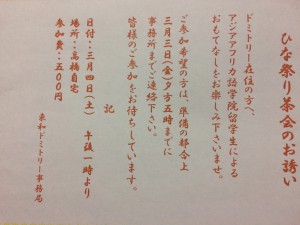 ひな祭り茶会のお誘い
ドミトリー在住の方へ、
アジアアフリカ語学院留学生による
おもてなしをお楽しみ下さいませ。
ご参加希望の方は、準備の都合上
三月三日(金)夕方五時までに
事務所までご連絡下さい。
皆様のご参加をお待ちしています。
記
日付:三月四日(土) 午後一時より
場所:高橋自宅
参加費:五00円
来和ドミトリー事務局